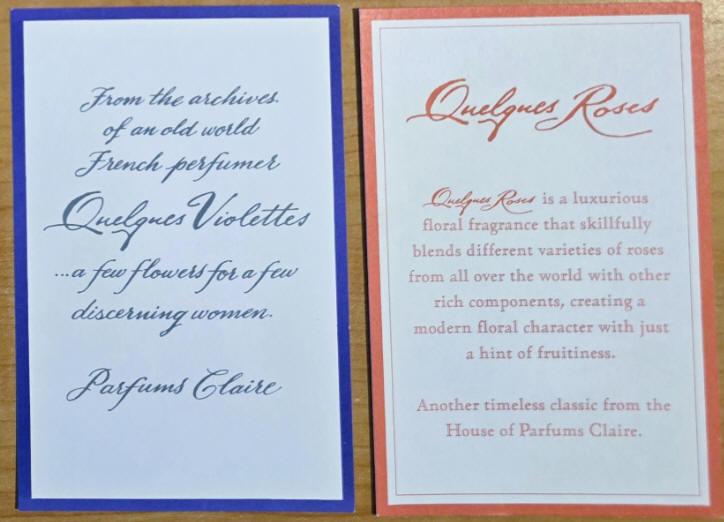 From the archives
of an old world
French perfumer
Quelques Violettes
...a few flowers for a few
discerning women.
Parfums Claire
Quelques Roses
Quelques Roses is a luxurious
floral fragrance that skillfully
blends different varieties of roses
from all over the world with other
rich components, creating a
modern floral character with just
a hint of fruitiness.
Another timeless classic from the
House of Parfums Claire.